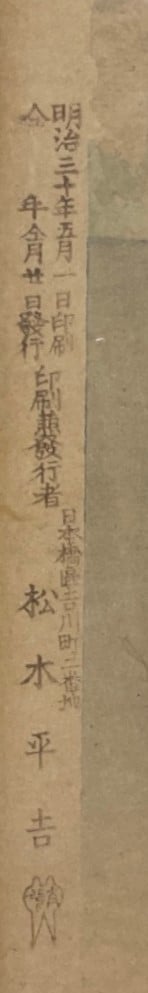 明治三十年五月一日印刷
仝年仝月廿日發行
印刷兼發行者
日本橋區吉川町二番地
松木平吉